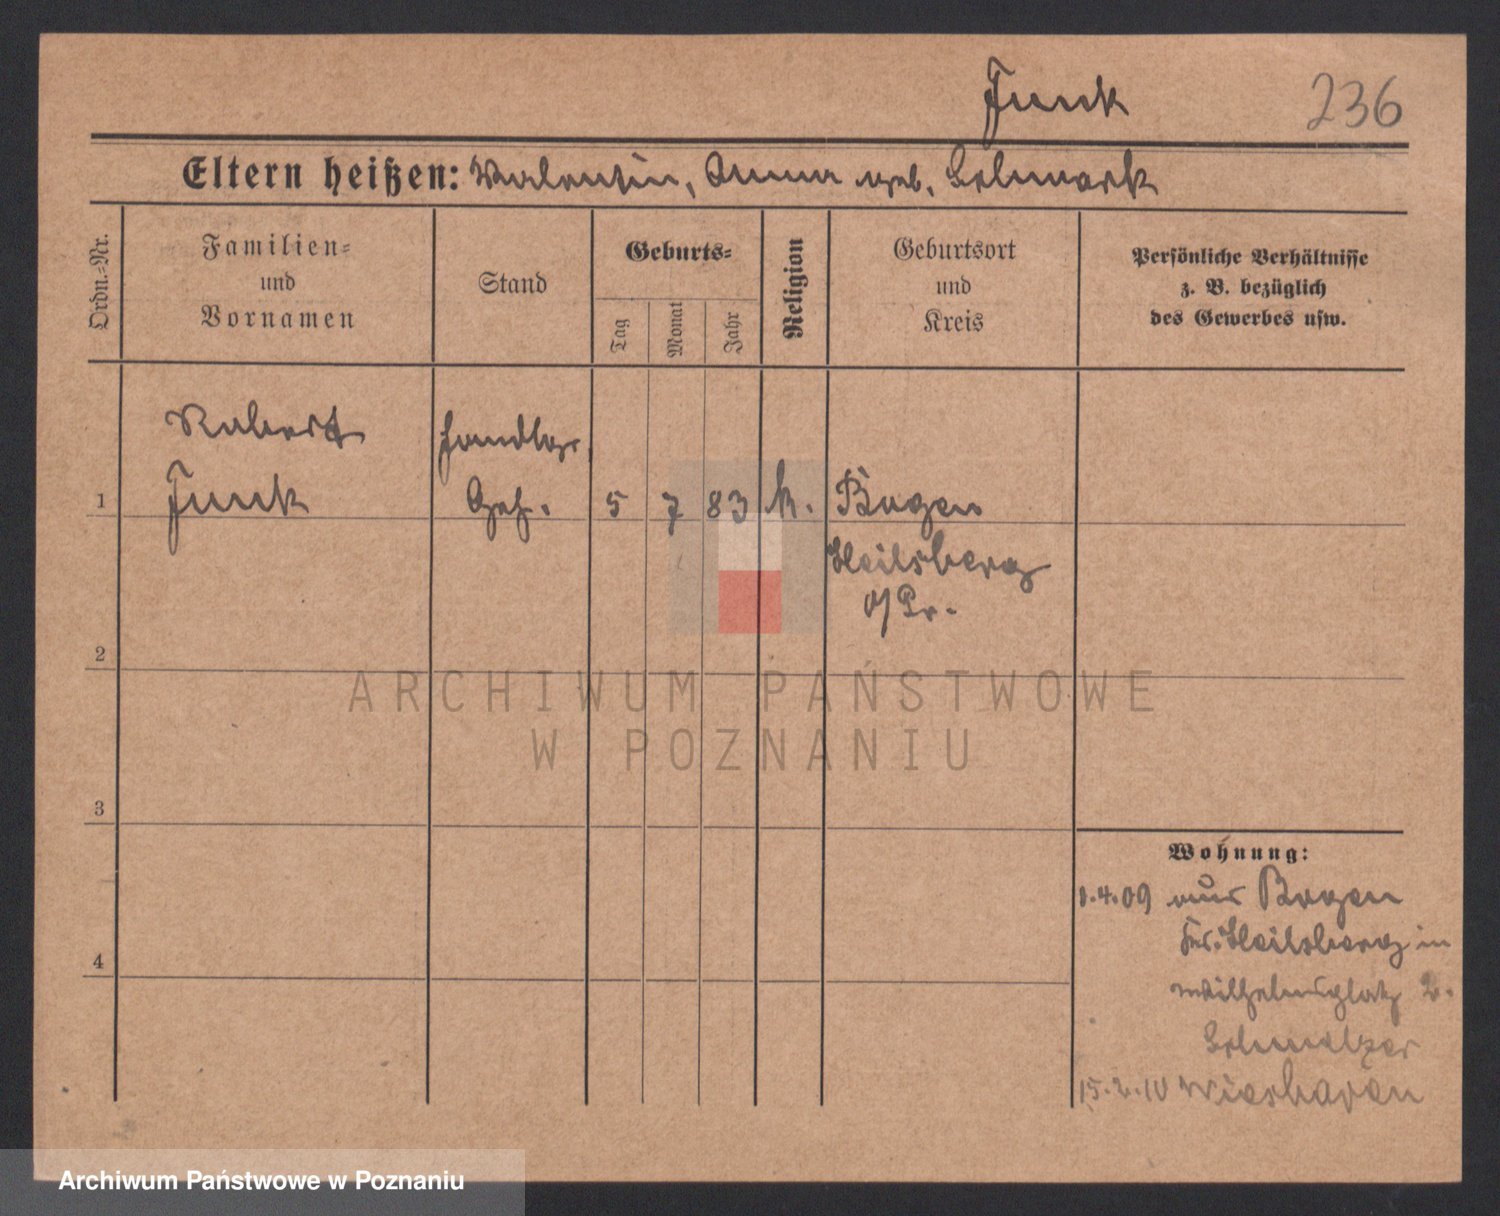 Funk
236
Eltern heißen: Valentin, Anna geb. Schwark
Ordn.-Nr.
Familien-
und
Vornamen
Stand
Geburts-
Tag
Monat
Jahr
Religion
Geburtsort
und
Kreis
Persönliche Verhältnisse
z. B. bezüglich
des Gewerbes usw.
Robert Handlgs.
1 Funk Geh. 5 7 83 k. Bogen
Heilsberg
o/Pr.
2
ARCHIWUM PAŃSTWOWE
W POZNANIU
3
Wohnung:
1.4.09 aus Bogen
Kr. Heilsberg in
4
Wilhelmsplatz 2.
Schmelzer
15.2.10 Wiesbaden
Archiwum Państwowe w Poznaniu